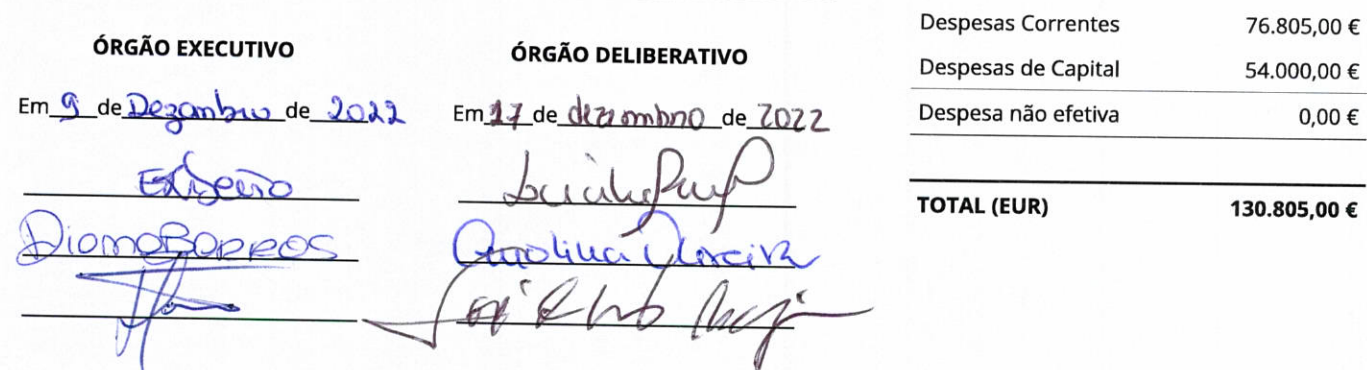 ÓRGÃO EXECUTIVO
Em 9 de Dezembro de 2022
Diana Barros
ÓRGÃO DELIBERATIVO
Em 17 de dezembro de 2022
Carolina Oliveira
Despesas Correntes 76.805,00 €
Despesas de Capital 54.000,00 €
Despesa não efetiva 0,00 €
TOTAL (EUR) 130.805,00 €